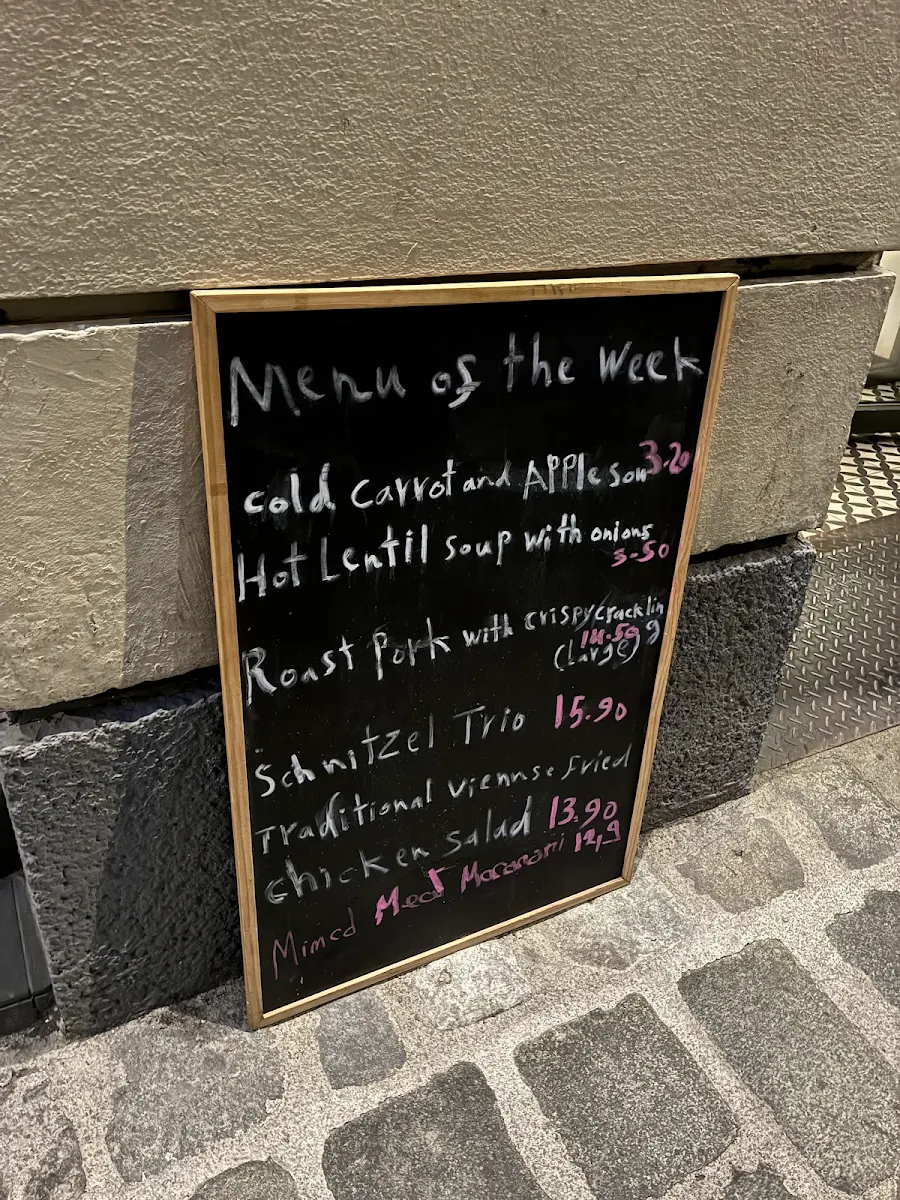 Menu of the Week
cold carrot and APPle Sou 3.20
Hot Lentil soup with onions
3.50
Roast Pork with crispy cracklin
14.50 g
(Large)
Schnitzel Trio 15.90
Traditional Viennse Fried
chicken salad 13.90
Mimcd Meat Macaroni 12,9